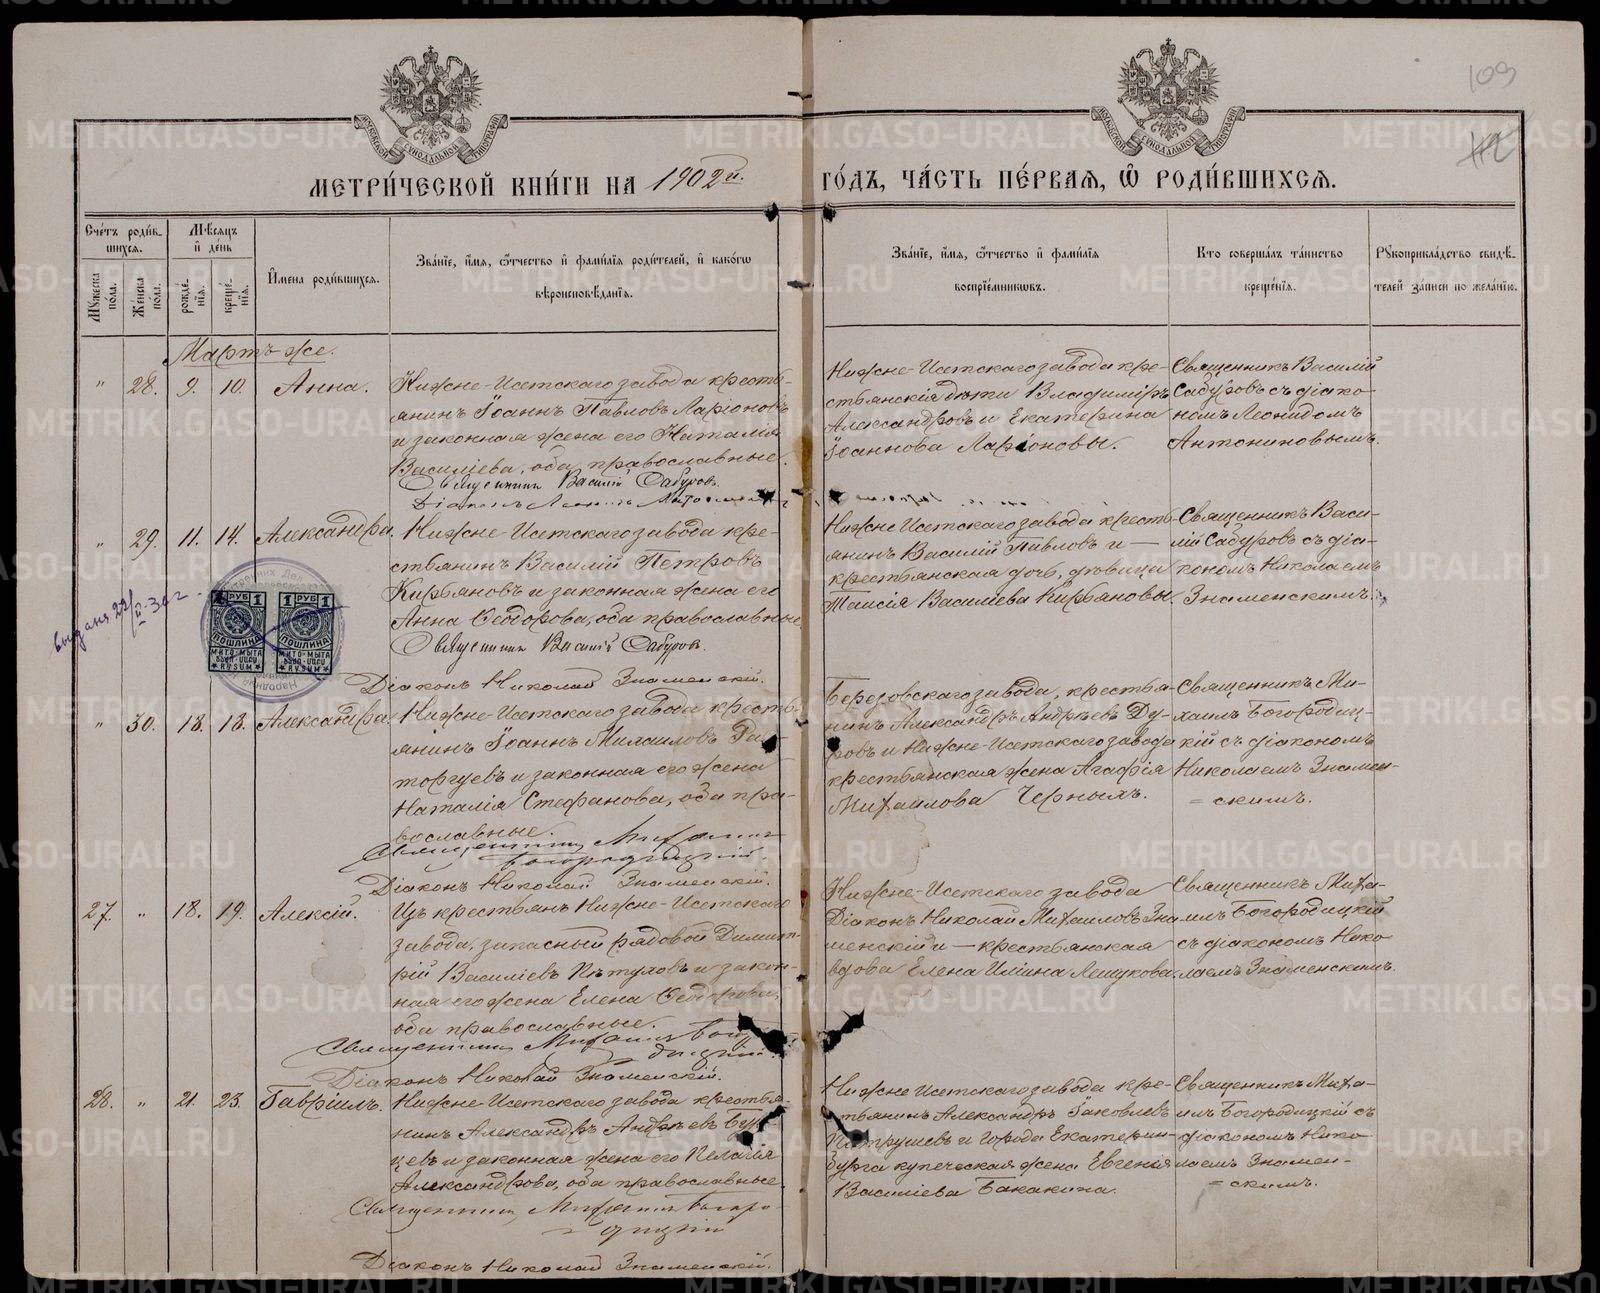 109
112
МЕТРИ́ЧЕСКОЙ КНИ́ГИ НА 1902й.
ГО́ДЪ, ЧА́СТЬ ПЕ́РВАѦ, Ѿ РОДИ́ВШИХСѦ.
Сче́тъ роди́в-
шихсѧ.
Мꙋ́жеска по́ла.
Же́нска по́ла.
Мѣ́сѧцъ
и҆ де́нь
рожде́-
нїѧ.
креще́-
нїѧ.
И҆мена роди́вшихсѧ.
Зва́нїе, и҆́мѧ, ѻ҆́тчество и҆ фами́лїѧ роди́телей, и҆ како́гѡ
вѣроисповѣ́данїѧ.
Зва́нїе, и҆́мѧ, ѻ҆́тчество и҆ фами́лїѧ
воспрїе́мникѡвъ.
Кто̀ соверша́лъ та́инство
креще́нїѧ.
Рꙋкоприкла́дство свидѣ́-
телей за́писи по жела́нїю.
Мартъ же.
" 28. 9. 10. Анна.
Нижне-Исетскаго завода кресть-
янинъ Іоаннъ Павловъ Ларіоновъ
и законная жена его Наталія
Василіева, оба православные.
Священникъ Василій Сабуровъ.
Діаконъ Леонидъ Антониновъ
Нижне-Исетскаго завода кре-
стьянскія дѣти Владиміръ
Александровъ и Екатерина
Іоаннова Ларіоновы.
Священникъ Василій
Сабуровъ съ діако-
номъ Леонидомъ
Антониновымъ.
" 29. 11. 14. Александра.
Нижне-Исетскаго завода кре-
стьянинъ Василій Петровъ
Кирьяновъ и законная жена его
Анна Ѳеодорова, оба православные
Священникъ Василій Сабуровъ.
Діаконъ Николай Знаменскій.
Нижне Исетскаго завода кресть-
янинъ Василій Павловъ и —
крестьянская дочь, дѣвица
Таисія Василіева Кирьяновы.
Священникъ Васи-
лій Сабуровъ съ діа-
кономъ Николаемъ
Знаменскимъ.
выдана
1 РУБ 1
ПОШЛИНА
МИТО-МЫТА
RYSUM
1 РУБ 1
ПОШЛИНА
МИТО-МЫТА
RYSUM
" 30. 18. 18. Александра
Нижне-Исетскаго завода кресть-
янинъ Іоаннъ Михаиловъ Рас-
торгуевъ и законная его жена
Наталія Стефанова, оба пра-
вославные.
Священникъ Михаилъ
Богородицкій.
Діаконъ Николай Знаменскій.
Березовскаго завода, крестья-
нинъ Александръ Андреевъ Ду-
ровъ и Нижне-Исетскаго завода
крестьянская жена Агафія
Михаилова Черныхъ.
Священникъ Ми-
хаилъ Богородиц-
кій съ діакономъ
Николаемъ Знамен-
= скимъ.
27. " 18. 19. Алексій.
Изъ крестьянъ Нижне-Исетскаго
завода, запасный рядовой Димит-
рій Василіевъ Пѣтуховъ и закон-
ная его жена Елена Ѳеодорова,
оба православные.
Священникъ Михаилъ Бого
дицкій.
Діаконъ Николай Знаменскій.
Нижне-Исетскаго завода
Діаконъ Николай Михаиловъ Зна-
менскій и — крестьянская
вдова Елена Иліина Лещукова.
Священникъ Миха-
илъ Богородицкій
съ діакономъ Нико-
лаемъ Знаменскимъ.
28. " 21. 23. Гавріилъ.
Нижне-Исетскаго завода крестья-
нинъ Александръ Андреевъ
цевъ и законная жена его Пелагія
Александрова, оба православные.
Священникъ Михаилъ Богоро-
= дицкій
Діаконъ Николай Знаменскій.
Нижне Исетскаго завода кре-
стьянинъ Александръ Іаковлевъ
Патрушевъ и города Екатерин-
бурга купеческая жена Евгенія
Василіева Бакакина.
Священникъ Миха-
илъ Богородицкій съ
діакономъ Нико-
лаемъ Знамен-
= скимъ.
METRIKI.GASO-URAL.RU